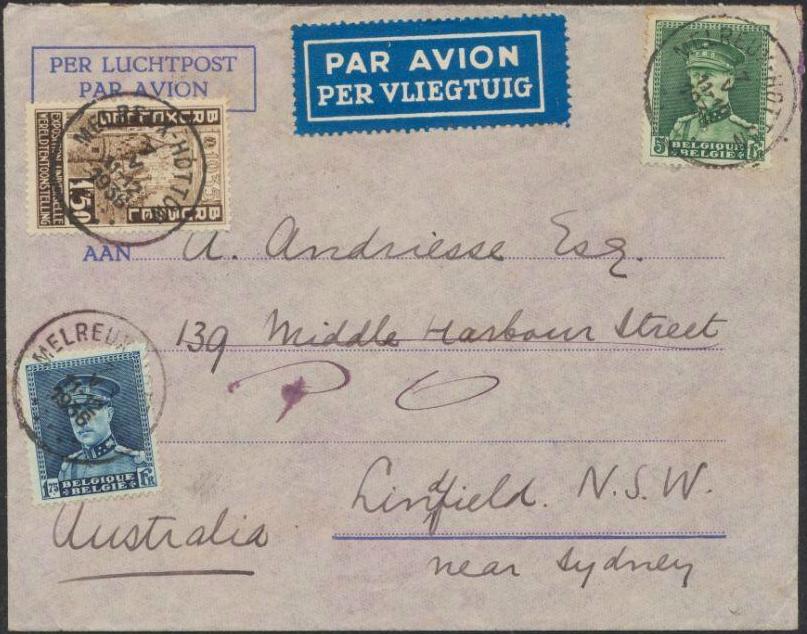 PER LUCHTPOST
PAR AVION
PAR AVION
PER VLIEGTUIG
BELGIQUE
5 BELGIË Fr
BRUXELLES
BRUSSEL
1.50
WERELDTENTOONSTELLING
MELREUX-HOTTON
1936
AAN A. Andriesse Esq.
139 Middle Harbour Street
P O
MELREUX
11-12
1936
BELGIQUE
1.75 BELGIE Fr
Lindfield. N.S.W.
Australia
near Sydney